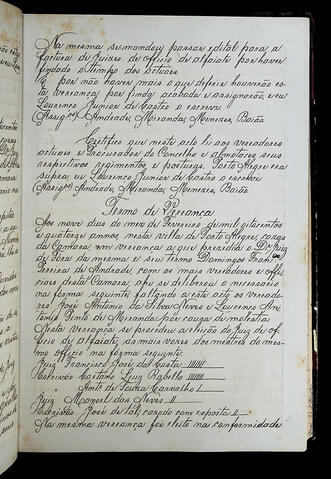 Na mesma se mandou passar edital para a
factura de Juizes de officio de alfaiate por haver
findado o tempo dos actuaes.
E por não haver mais o que deferir houverão es
ta vereança por finda, acabada e assignarão, eu
Lourenço Junior de Castro o escrevi
Assig.os Andrade, Miranda, Menezes, Baião.
Certifico que neste acto li aos vereadores
actuaes e Procurador do Conselho e almotaces seus
respectivos regimentos e posturas. Porto Alegre era
supra eu Lourenço Junior de Castro o escrevi
Assig.os Andrade, Miranda, Menezes, Baião
Termo de Vereança
Aos nove dias do mez de Fevereiro de mil oitocentos
e quatorze annos, nesta villa de Porto Alegre, cazas
da Camara, em vereança a que prezidio o Dr. Juiz
de Fora da mesma e seu Termo Domingos Fran.co
Pereira de Andrade, com os mais vereadores e offi
ciaes desta Camara, ahi se deliberou o necessario
na forma seguinte, faltando a este acto os vereado
res José Antonio da Silva Neves e Lourenço An
tonio Pinto de Miranda por cauza de molestia
Nesta vereação se procedeu a eleição do Juiz de of
ficio de alfaiate, as mais vozes dos mestres do mes
mo officio na forma seguinte
Juiz Francisco José da Costa
Escrivão Caetano Luiz Rabello
de Souza Carvalho
Juiz Manoel das Neves II
Escrivão José de tal, cazado com exposta II
Na mesma vereança foi eleito na conformidade